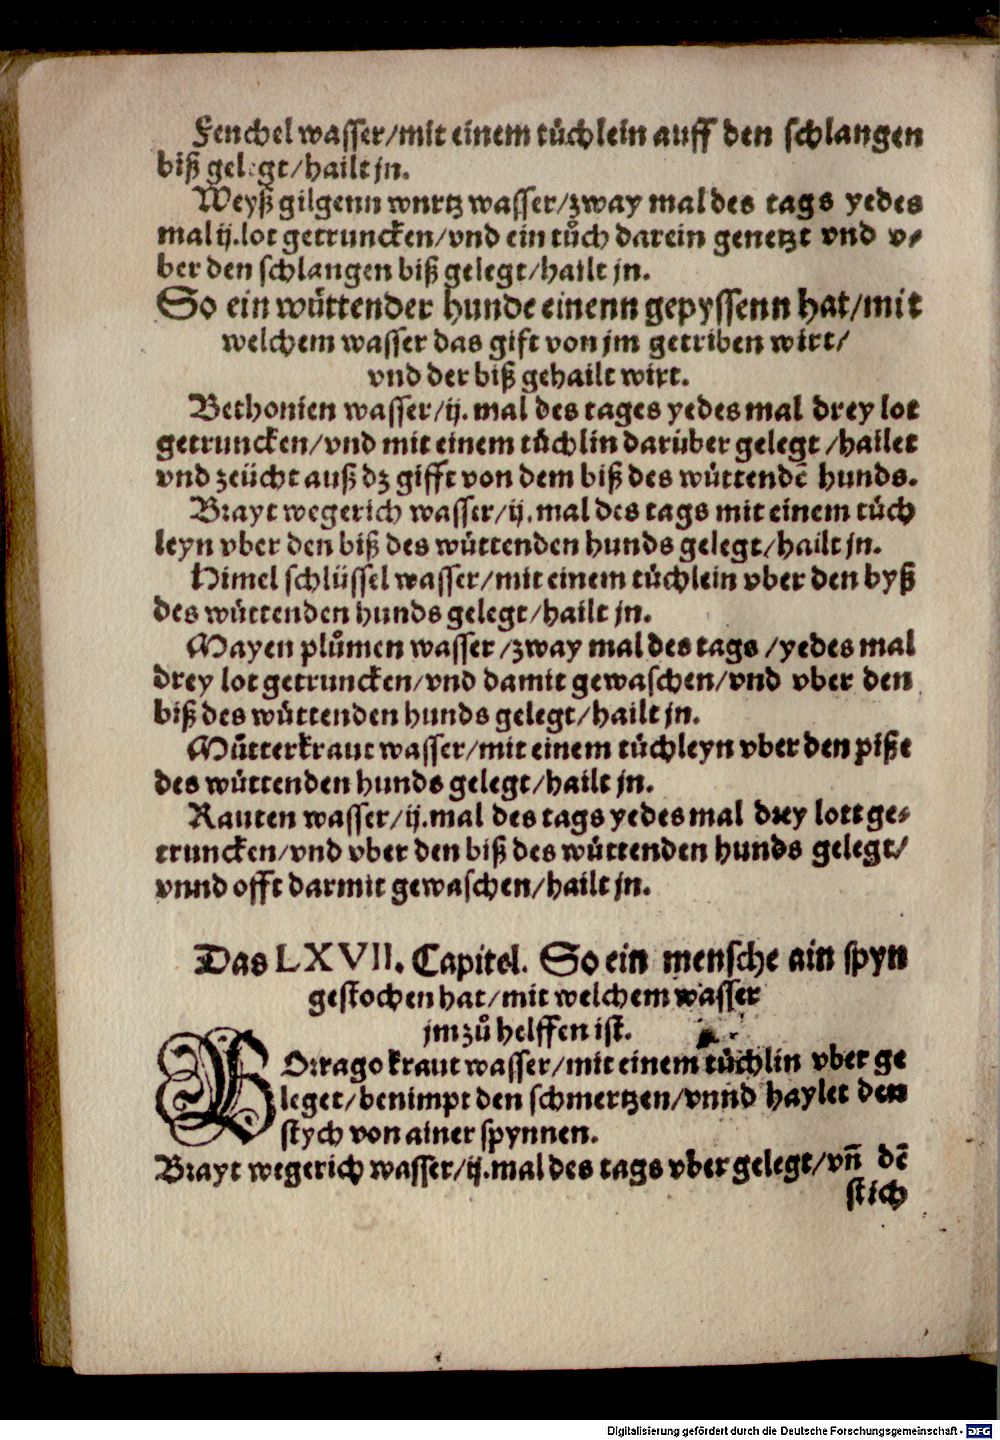 Fenchel wasser/mit einem tuͤchlein auff den schlangen
biß gelegt/hailt jn.
Weyß gilgenn wurtz wasser/zway mal des tags yedes
mal ij.lot getruncken/vnd ein tuͦch darein genetzt vnd v⸗
ber den schlangen biß gelegt/hailt jn.
So ein wuͤttender hunde einenn gepyssenn hat/mit
welchem wasser das gift von jm getriben wirt/
vnd der biß gehailt wirt.
Bethonien wasser/ij. mal des tages yedes mal drey lot
getruncken/vnd mit einem tuͤchlin darüber gelegt /hailet
vnd zeücht auß dz gifft von dem biß des wuͤttendē hunds.
Brayt wegerich wasser/ij.mal des tags mit einem tuͤch
leyn vber den biß des wuͤttenden hunds gelegt/hailt jn.
Himel schlüssel wasser/mit einem tuͤchlein vber den byß
des wuͤttenden hunds gelegt/hailt jn.
Mayen pluͦmen wasser /zway mal des tags /yedes mal
drey lot getruncken/vnd damit gewaschen/vnd vber den
biß des wuͤttenden hunds gelegt/hailt jn.
Muͤtterkraut wasser/mit einem tuͤchleyn vber den piße
des wuͤttenden hunds gelegt/hailt jn.
Rauten wasser/ij.mal des tags yedes mal drey lott ge⸗
truncken/vnd vber den biß des wuͤttenden hunds gelegt/
vnnd offt darmit gewaschen/hailt jn.
Das LXVII. Capitel. So ein mensche ain spyn
gestochen hat/mit welchem wasser
jm zuͦ helffen ist.
BOrago kraut wasser/mit einem tuͤchlin vber ge
leget/benimpt den schmertzen/vnnd haylet den
stych von ainer spynnen.
Brayt wegerich wasser/ij.mal des tags vber gelegt/vn̄ dē
stich
Digitalisierung gefördert durch die Deutsche Forschungsgemeinschaft - DFG